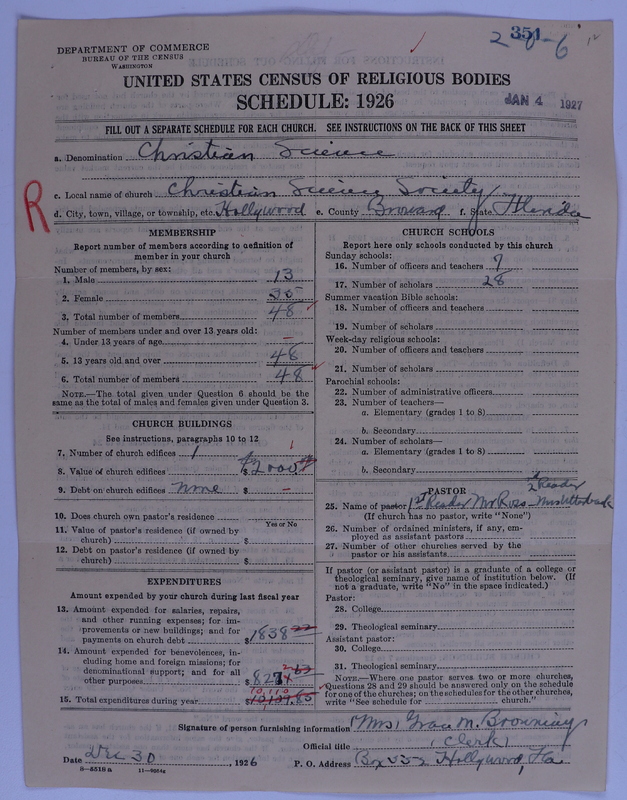 351
2-0-6
12
DEPARTMENT OF COMMERCE
BUREAU OF THE CENSUS
WASHINGTON
UNITED STATES CENSUS OF RELIGIOUS BODIES
SCHEDULE: 1926
JAN 4 1927
FILL OUT A SEPARATE SCHEDULE FOR EACH CHURCH. SEE INSTRUCTIONS ON THE BACK OF THIS SHEET
a. Denomination Christian Science
R
c. Local name of church Christian Science Society
d. City, town, village, or township, etc. Hollywood e. County Broward f. State Florida
MEMBERSHIP
Report number of members according to definition of
member in your church
Number of members, by sex:
1. Male 13
2. Female 35
3. Total number of members 48
Number of members under and over 13 years old:
4. Under 13 years of age –
5. 13 years old and over 48
6. Total number of members 48
NOTE.—The total given under Question 6 should be the
same as the total of males and females given under Question 3.
CHURCH BUILDINGS
See instructions, paragraphs 10 to 12
7. Number of church edifices 1 1
8. Value of church edifices $2000
9. Debt on church edifices none $ –
10. Does church own pastor's residence
Yes or No
11. Value of pastor's residence (if owned by
church) $
12. Debt on pastor's residence (if owned by
church) $
EXPENDITURES
Amount expended by your church during last fiscal year
13. Amount expended for salaries, repairs,
and other running expenses; for im-
provements or new buildings; and for
payments on church debt $1838
14. Amount expended for benevolences, in-
cluding home and foreign missions; for
denominational support; and for all
other purposes $
15. Total expenditures during year $ 10,110
CHURCH SCHOOLS
Report here only schools conducted by this church
Sunday schools:
16. Number of officers and teachers 7
17. Number of scholars 28
Summer vacation Bible schools:
18. Number of officers and teachers
19. Number of scholars
Week-day religious schools:
20. Number of officers and teachers
21. Number of scholars
Parochial schools:
22. Number of administrative officers
23. Number of teachers—
a. Elementary (grades 1 to 8)
b. Secondary
24. Number of scholars—
a. Elementary (grades 1 to 8)
b. Secondary
PASTOR
2d Reader
25. Name of pastor 1st Reader Mr Ross – Mrs
(If church has no pastor, write "None")
26. Number of ordained ministers, if any, em-
ployed as assistant pastors
27. Number of other churches served by the
pastor or his assistants
If pastor (or assistant pastor) is a graduate of a college or
theological seminary, give name of institution below. (If
not a graduate, write "No" in the space indicated.)
Pastor:
28. College
29. Theological seminary
Assistant pastor:
30. College
31. Theological seminary
NOTE.—Where one pastor serves two or more churches,
Questions 28 and 29 should be answered only on the schedule
for one of the churches; on the schedules for the other churches,
write "See schedule for church."
Signature of person furnishing information Mrs Grace M. Browning
Official title (Clerk)
Date Dec 30, 1926 P. O. Address Box 352 Hollywood, Fla
8-5518a 11-9954a